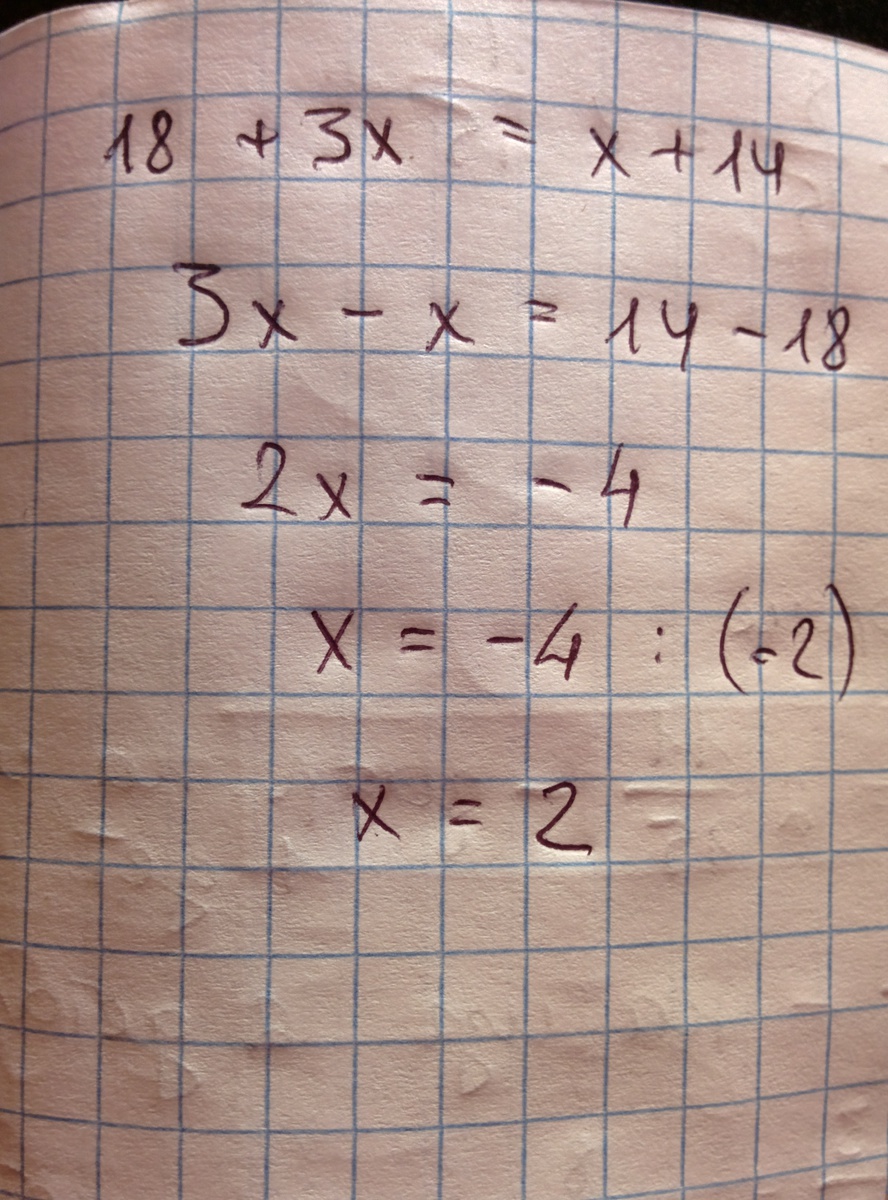 18 + 3x = x + 14
3x - x = 14 - 18
2x = - 4
x = -4 : (-2)
x = 2